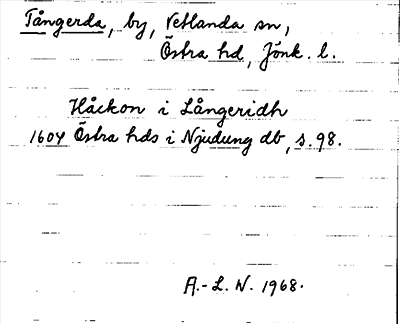 Tångerda, by, Vetlanda sn,
Östra hd, Jönk. l.
Håckon i Långeridh
1604 Östra hds i Njudung db, s. 98.
A.-L. N. 1968.